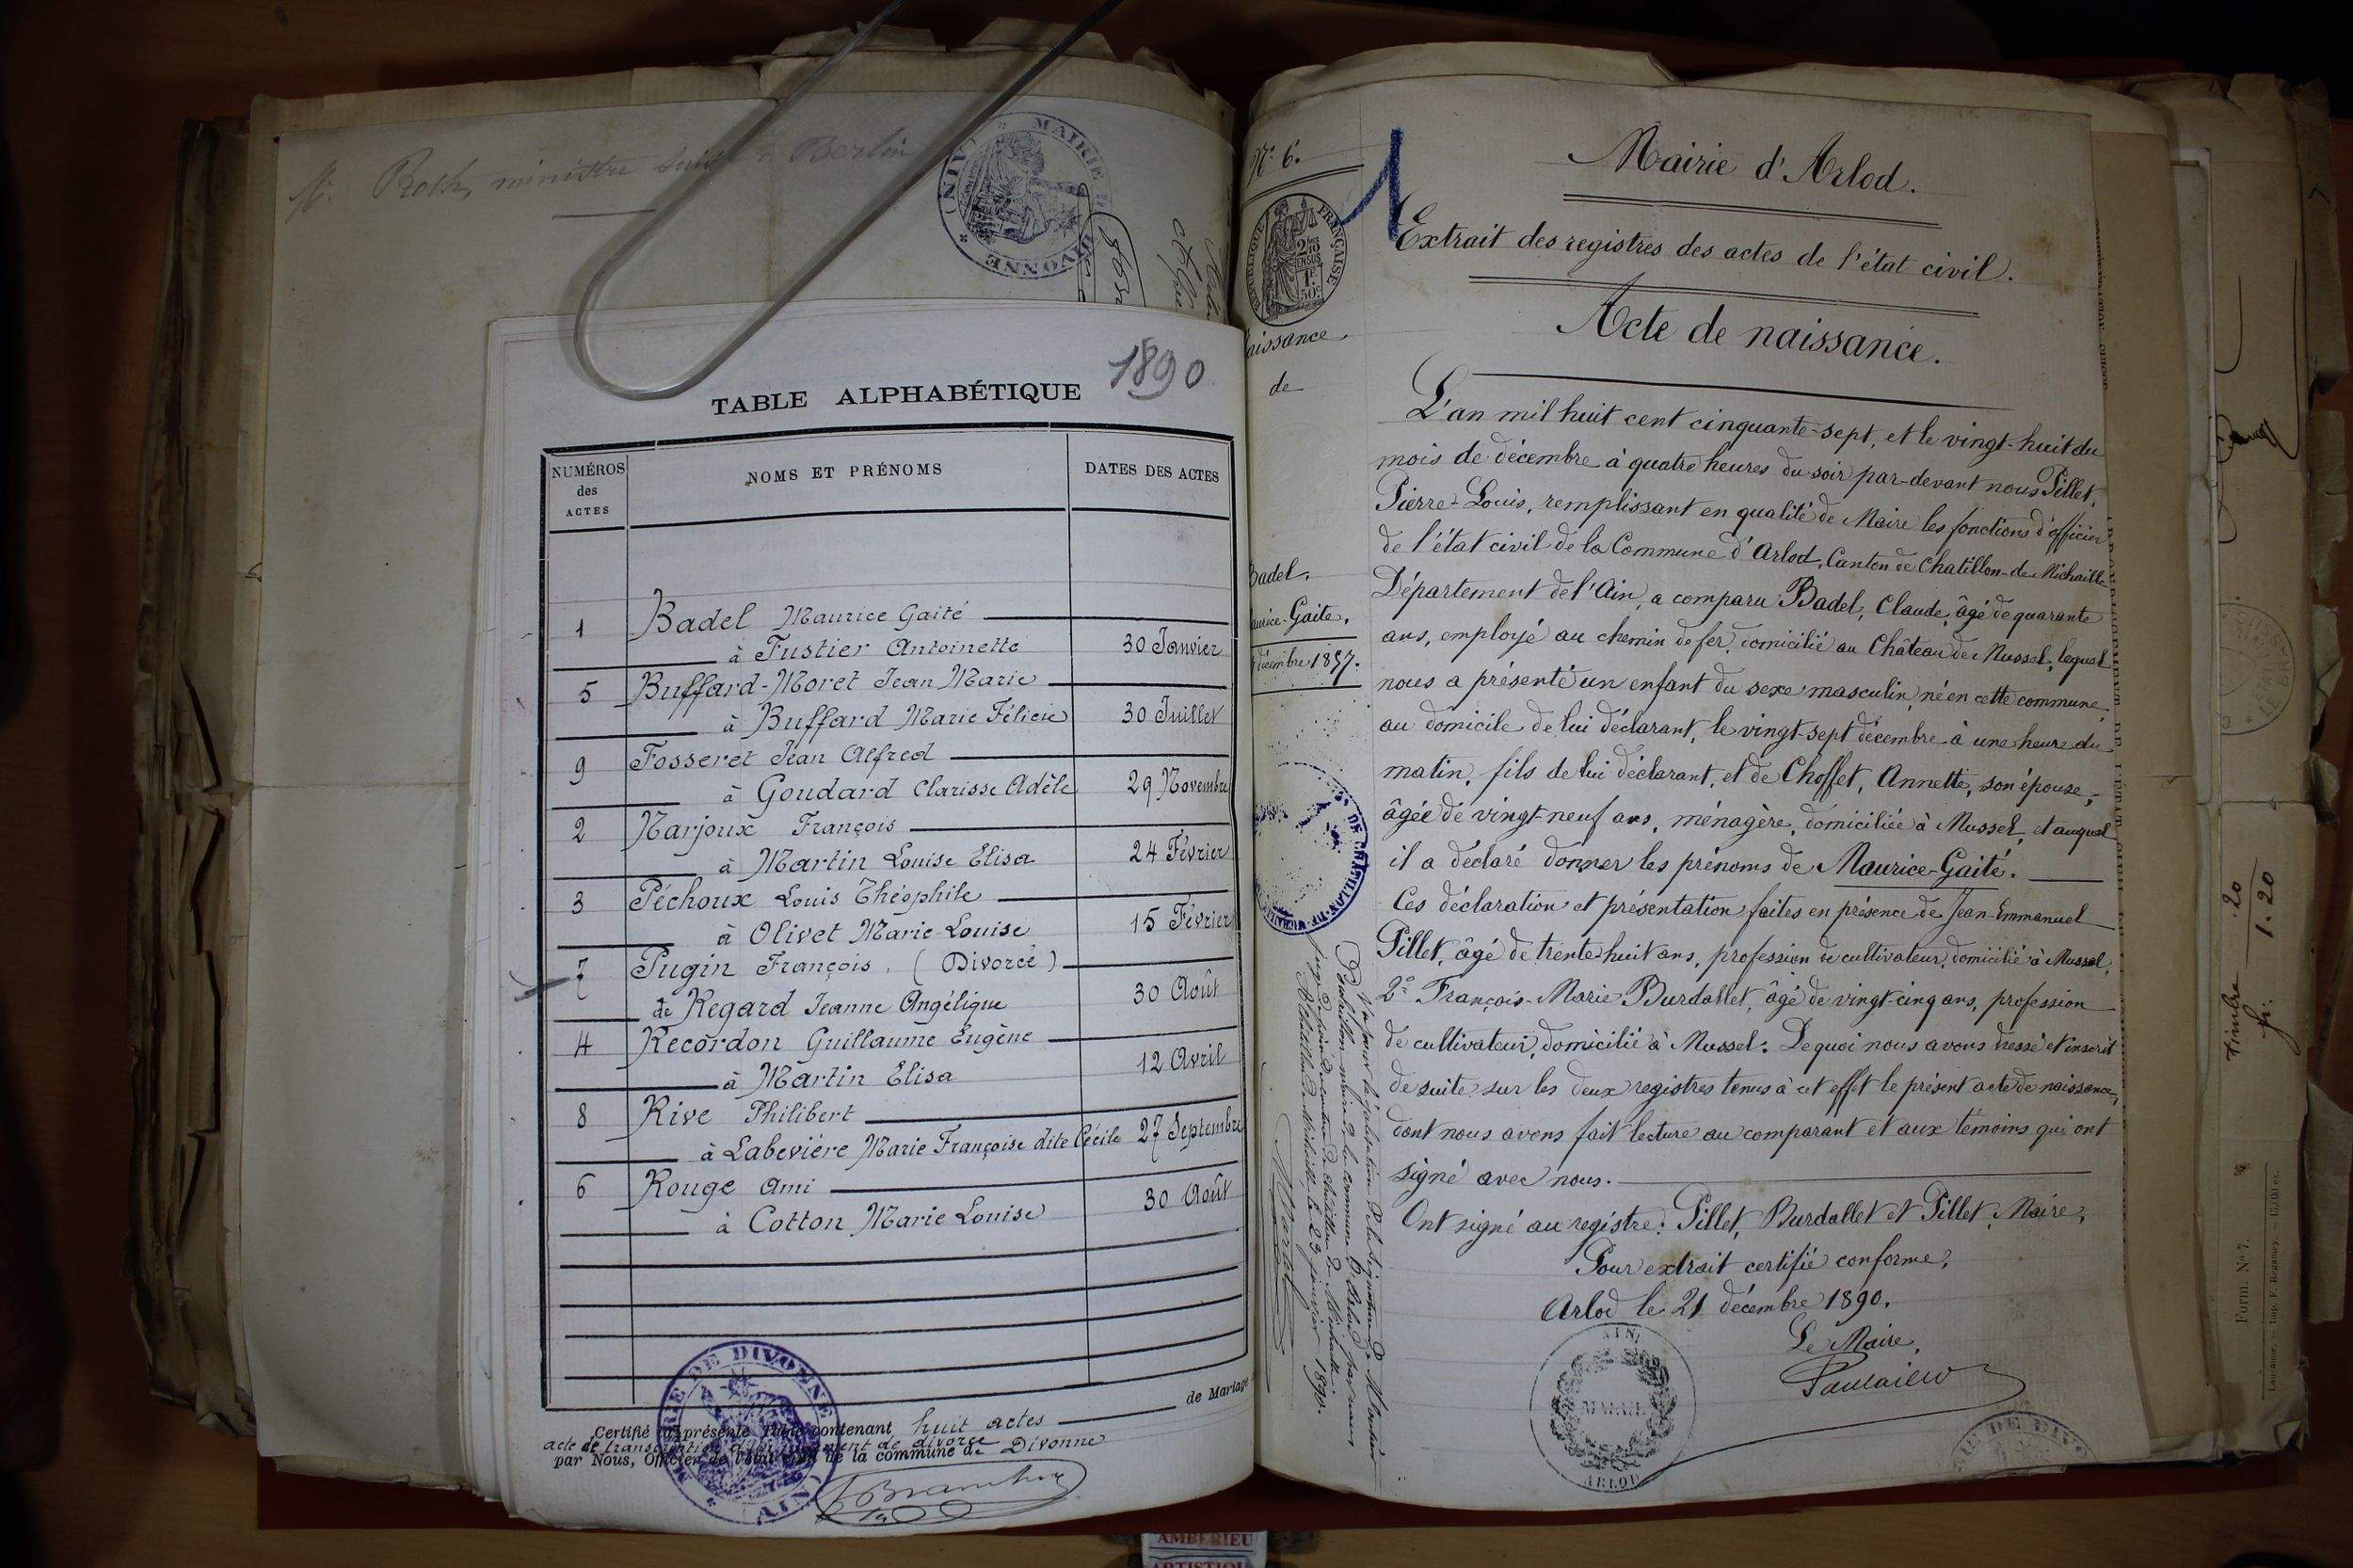 Roth, ministre suisse à Berlin
MAIRIE
DIVONNE
(AIN)
1890
TABLE ALPHABÉTIQUE
NUMÉROS des ACTES
NOMS ET PRÉNOMS
DATES DES ACTES
1 Badel Maurice Gaité
à Fustier Antoinette 30 Janvier
5 Buffard-Moret Jean Marie
à Buffard Marie Félicie 30 Juillet
9 Fosseret Jean Alfred
à Goudard Clarisse Adèle 29 Novembre
2 Marjoux François
à Martin Louise Elisa 24 Février
3 Péchoux Louis Théophile
à Olivet Marie Louise 15 Février
7 Pugin François. (Divorcé)
de Regard Jeanne Angélique 30 Août
4 Recordon Guillaume Eugène
à Martin Elisa 12 Avril
8 Rive Philibert
à Labevière Marie Françoise dite Cécile 27 Septembre
6 Rouge Ami
à Cotton Marie Louise 30 Août
Certifié la présente Table contenant huit actes de Mariage
acte de transcription de jugement de divorce
par Nous, Officier de l'état civil de la commune de Divonne
MAIRIE DE DIVONNE
(AIN)
N° 6.
RÉPUBLIQUE FRANÇAISE
2/10 EN SUS
1F 50c
aissance
de
Badel,
aurice-Gaité.
décembre 1857.
Mairie d'Arlod.
Extrait des registres des actes de l'état civil.
Acte de naissance.
L'an mil huit cent cinquante-sept, et le vingt-huit du
mois de décembre à quatre heures du soir par-devant nous Pillet,
Pierre-Louis, remplissant en qualité de Maire les fonctions d'officier
de l'état civil de la Commune d'Arlod, Canton de Chatillon-de-Michaille
Département de l'Ain, a comparu Badel, Claude, âgé de quarante
ans, employé au chemin de fer, domicilié au Château de Mussel, lequel
nous a présenté un enfant du sexe masculin, né en cette commune,
au domicile de lui déclarant, le vingt-sept décembre à une heure du
matin, fils de lui déclarant, et de Choffet, Annette, son épouse,
âgée de vingt-neuf ans, ménagère, domiciliée à Mussel, et auquel
il a déclaré donner les prénoms de Maurice-Gaité.
Ces déclaration et présentation faites en présence de Jean-Emmanuel
Pillet, âgé de trente-huit ans, profession de cultivateur, domicilié à Mussel,
2° François-Marie Burdallet, âgé de vingt-cinq ans, profession
de cultivateur, domicilié à Mussel. De quoi nous avons dressé et inscrit
de suite sur les deux registres tenus à cet effet le présent acte de naissance,
dont nous avons fait lecture au comparant et aux témoins qui ont
signé avec nous.
Ont signé au registre: Pillet, Burdallet et Pillet, Maire,
Pour extrait certifié conforme,
Arlod le 21 décembre 1890.
Le Maire,
AIN
MAIRIE
ARLOD
Vu pour légalisation de la signature de Monsieur
maire de la commune d'Arlod par nous
juge de paix du canton de Chatillon de Michaille
Chatillon de Michaille le 23 janvier 1890.
Timbre .20
fr. 1.20
Form. N° 7.
Lausanne. — Imp. F. Regamey.
AMBERIEU